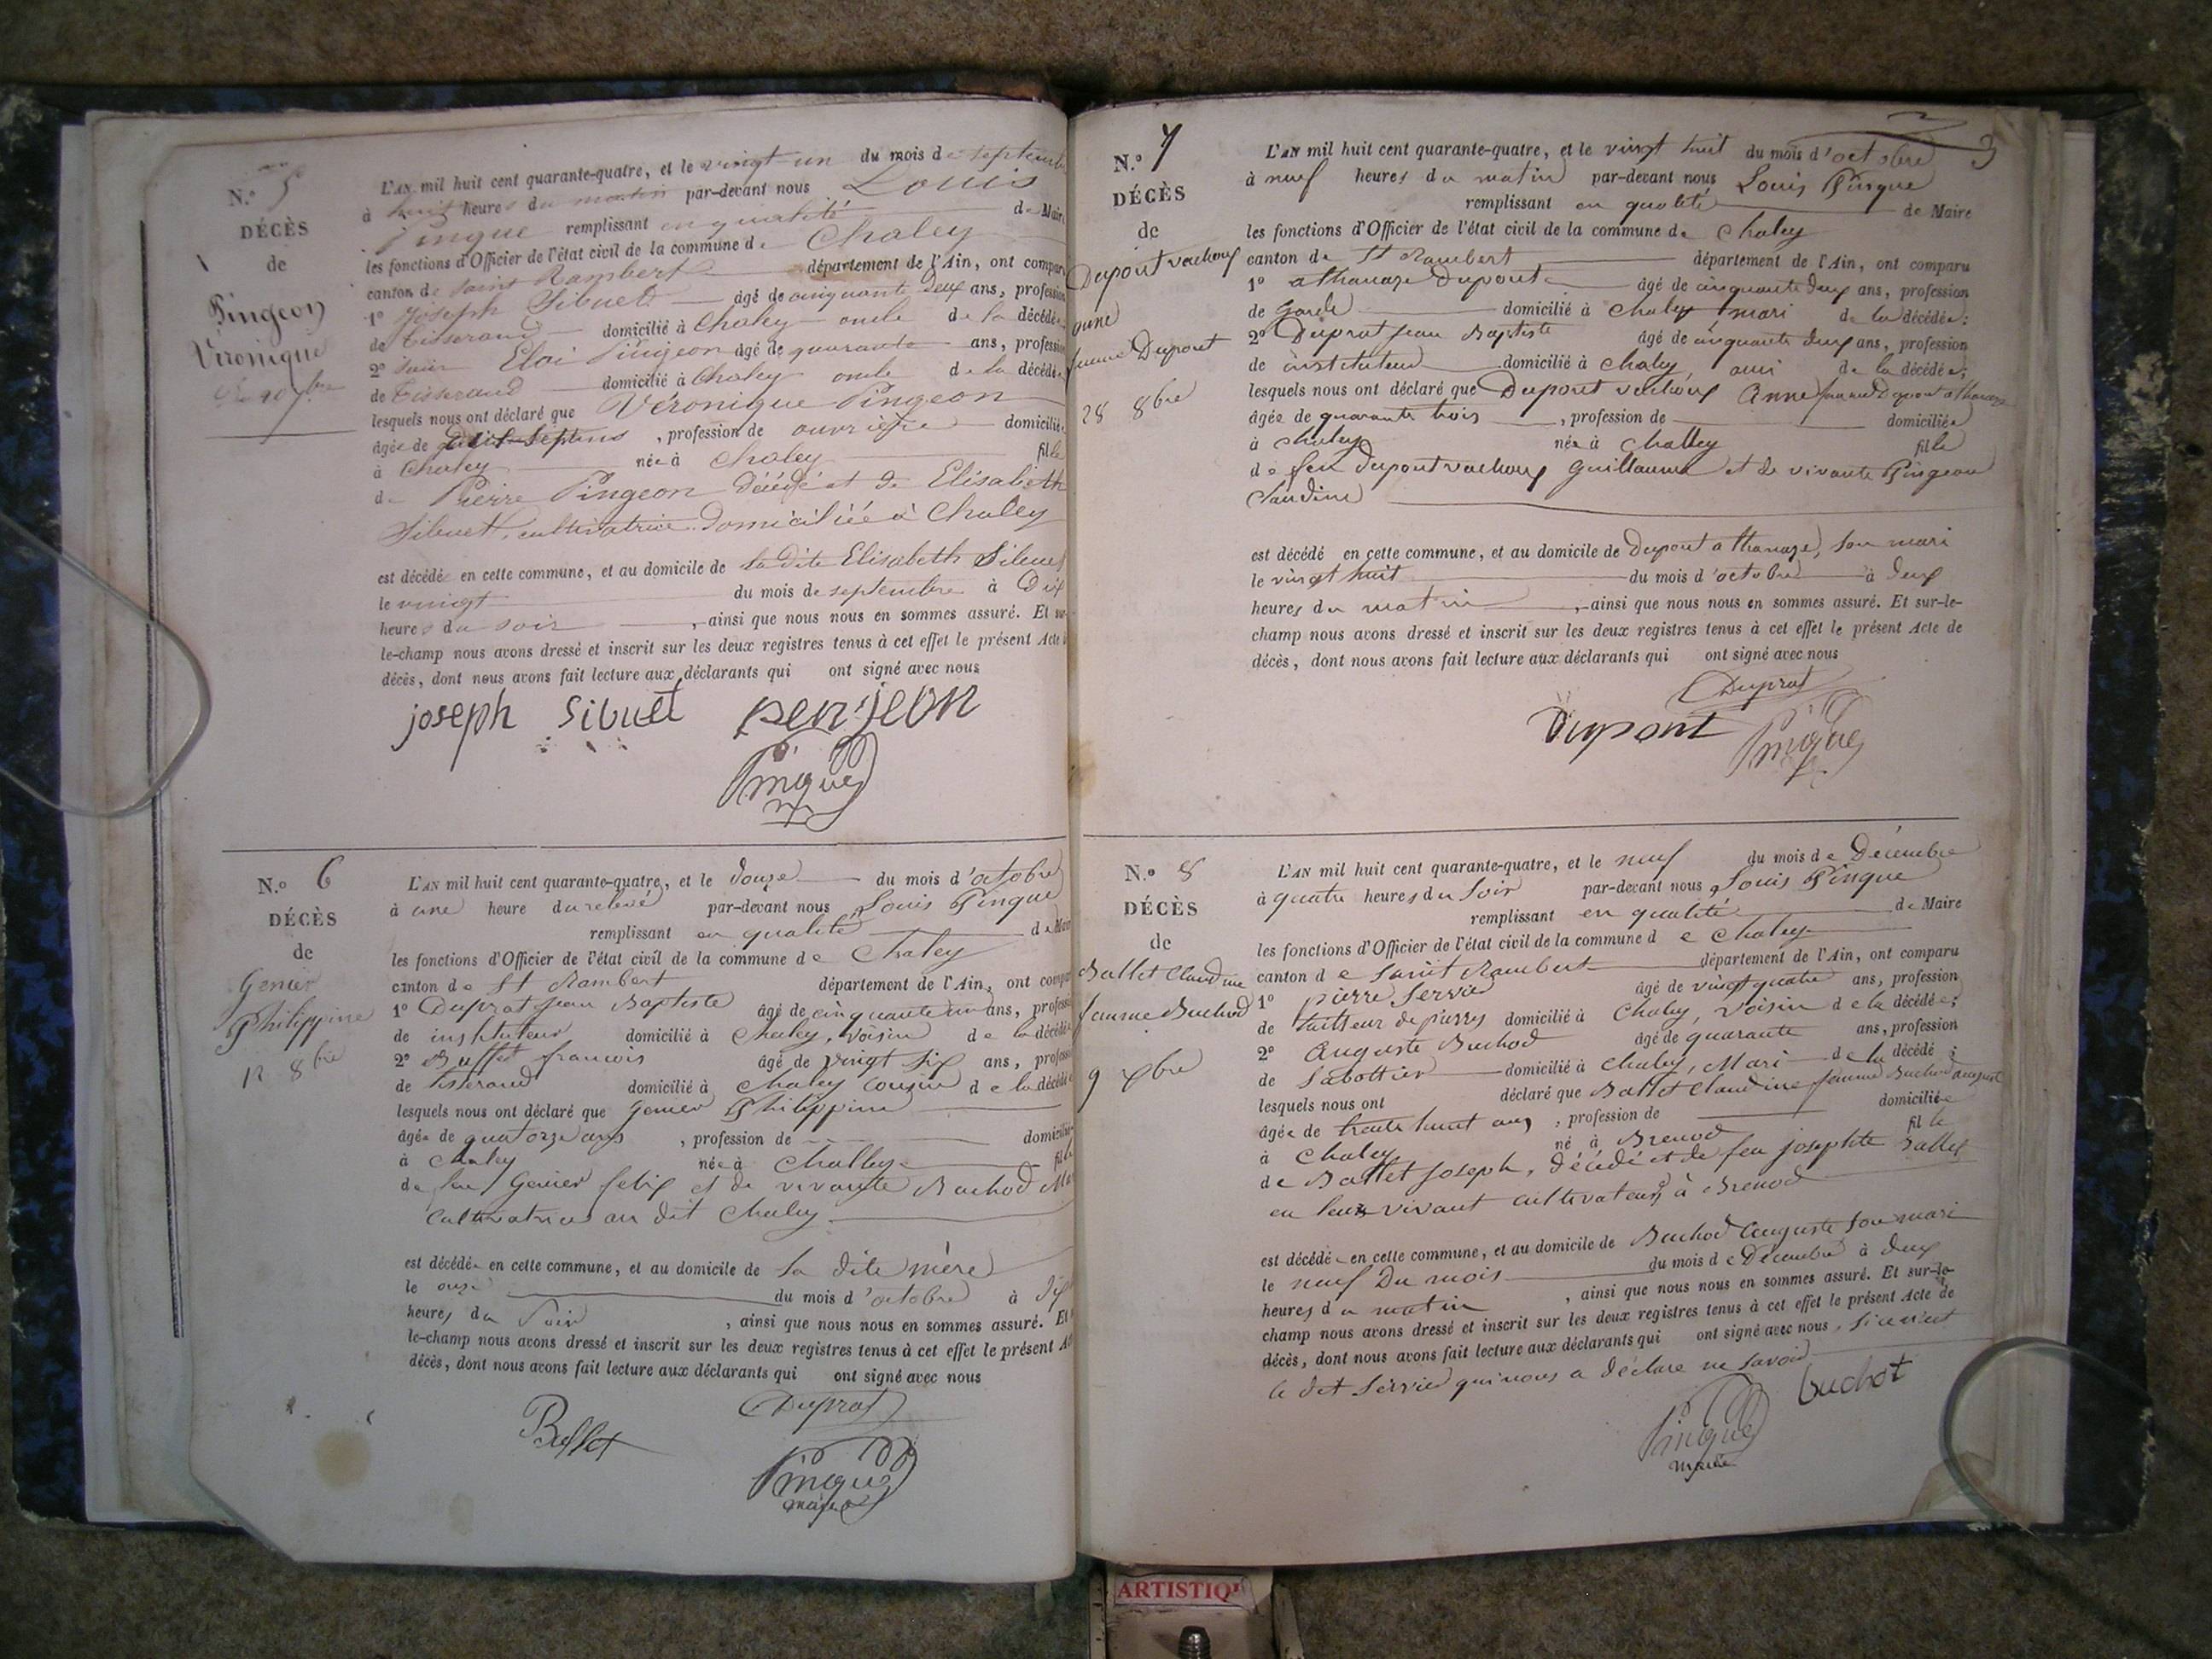 N.o 5
DÉCÈS
de
Pingeon
Véronique
L'AN mil huit cent quarante-quatre, et le vingt un du mois de septemb
à huit heures du matin par-devant nous Louis
Pingue remplissant en qualité de Mair
les fonctions d'Officier de l'état civil de la commune de Chaley
canton de Saint Rambert département de l'Ain, ont compar
1o Joseph Sibuet âgé de cinquante deux ans, profession
de tisserand domicilié à Chaley oncle de la décédée
2o Eloi Pingeon âgé de quarante ans, profession
de tisserand domicilié à Chaley oncle de la décédée
lesquels nous ont déclaré que Véronique Pingeon
âgée de , profession de ouvrière domiciliée
à Chaley née à Chaley fille
de Pierre Pingeon décédé et de Elisabeth
Sibuet, cultivatrice domiciliée à Chaley
est décédée en cette commune, et au domicile de la dite Elisabeth Sibuet
le vingt du mois de septembre à Dix
heures du soir , ainsi que nous nous en sommes assuré. Et sur-
le-champ nous avons dressé et inscrit sur les deux registres tenus à cet effet le présent Acte
décès, dont nous avons fait lecture aux déclarants qui ont signé avec nous
joseph sibuet penjeon
Pingue
N.o 6
DÉCÈS
de
Genier
Philippine
12 8bre
L'AN mil huit cent quarante-quatre, et le douze du mois d'octobre
à une heure du relevé par-devant nous Louis Pingue
remplissant en qualité de Mair
les fonctions d'Officier de l'état civil de la commune de Chaley
canton de St Rambert département de l'Ain, ont compar
1o Duprat jean Baptiste âgé de cinquante un ans, profess
de instituteur domicilié à Chaley, voisin de la décédée
2o Buffet francois âgé de vingt six ans, profess
de tisserand domicilié à Chaley cousin de la décédée
lesquels nous ont déclaré que Genier Philippine
âgée de quatorze ans , profession de domiciliée
à Chaley née à Challey fille
de feu Genier felix et de vivante Buchod
cultivatrice au dit Chaley
est décédée en cette commune, et au domicile de la dite mère
le onze du mois d'octobre à dix
heures du soir , ainsi que nous nous en sommes assuré. Et
le-champ nous avons dressé et inscrit sur les deux registres tenus à cet effet le présent A
décès, dont nous avons fait lecture aux déclarants qui ont signé avec nous
Duprat
Buffet
Pingue
maire
N.o 7
DÉCÈS
de
Dupont vachoux
anne
femme Dupont
28 8bre
L'AN mil huit cent quarante-quatre, et le vingt huit du mois d'octobre
à neuf heures du matin par-devant nous Louis Pingue
remplissant en qualité de Maire
les fonctions d'Officier de l'état civil de la commune de Chaley
canton de St Rambert département de l'Ain, ont comparu
1o athanaze Dupont âgé de cinquante deux ans, profession
de garde domicilié à Chaley mari de la décédée;
2o Duprat jean Baptiste âgé de cinquante deux ans, profession
de instituteur domicilié à Chaley, ami de la décédée;
lesquels nous ont déclaré que Dupont vachoux Anne femme Dupont athanaze
âgée de quarante trois , profession de domiciliée
à Chaley née à Challey fille
de feu dupont vachoux Guillaume et de vivante Pingeon
Claudine
est décédé en cette commune, et au domicile de Dupont athanaze, son mari
le vingt huit du mois d'octobre à deux
heures du matin , ainsi que nous nous en sommes assuré. Et sur-le-
champ nous avons dressé et inscrit sur les deux registres tenus à cet effet le présent Acte de
décès, dont nous avons fait lecture aux déclarants qui ont signé avec nous
Duprat
Dupont Pingue
N.o 8
DÉCÈS
de
Ballet Claudine
femme Buchod
9 xbre
L'AN mil huit cent quarante-quatre, et le neuf du mois de Décembre
à quatre heures du soir par-devant nous Louis Pingue
remplissant en qualité de Maire
les fonctions d'Officier de l'état civil de la commune de Chaley
canton de Saint Rambert département de l'Ain, ont comparu
1o pierre Servier âgé de vingt quatre ans, profession
de tailleur de pierres domicilié à Chaley, voisin de la décédée;
2o Auguste Buchod âgé de quarante ans, profession
de Sabottier domicilié à Chaley, Mari de la décédé;
lesquels nous ont déclaré que Ballet Claudine femme Buchod auguste
âgée de trente huit ans , profession de domiciliée
à Chaley né à Brenod fille
de Ballet Joseph, décédé et de feu josephte Ballet
en leurs vivant cultivateurs à Brenod
est décédée en cette commune, et au domicile de Buchod Auguste son mari
le neuf Du mois du mois de Décembre à deux
heures du matin , ainsi que nous nous en sommes assuré. Et sur-le-
champ nous avons dressé et inscrit sur les deux registres tenus à cet effet le présent Acte de
décès, dont nous avons fait lecture aux déclarants qui ont signé avec nous, si ce n'est
le dit Servier qui nous a déclaré ne savoir
buchot
Pingue
maire
ARTISTIQ